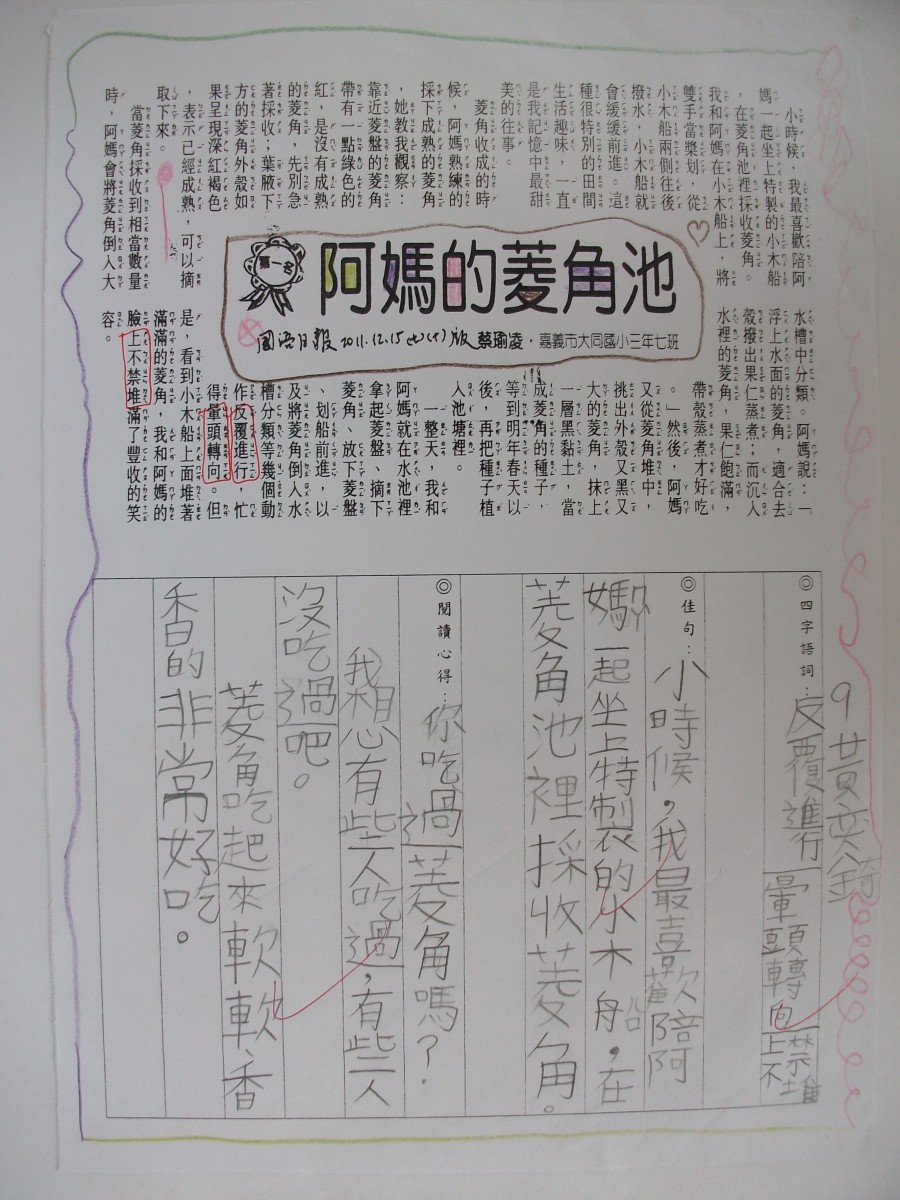 小時候,我最喜歡陪阿
媽一起坐上特製的小木船
,在菱角池裡採收菱角。
我和阿媽在小木船上,將
雙手當槳划,從
小木船兩側往後
撥水,小木船就
會緩緩前進。這
種很特別的田間
生活趣味,一直
是我記憶中最甜
美的往事。
菱角收成的時
候,阿媽熟練的
採下成熟的菱角
,她教我觀察:
靠近菱盤的菱角
帶有一點綠色的
紅,是沒有成熟
的菱角,先別急
著採收;葉腋下
方的菱角外殼如
果呈現深紅褐色
,表示已經成熟,可以摘
取下來。
當菱角採收到相當數量
時,阿媽會將菱角倒入大
第一名
阿媽的菱角池
國語日報 2011.12.15(七)版 蔡瑜凌・嘉義市大同國小三年七班
水槽中分類。阿媽說:「
浮上水面的菱角,適合去
殼撥出果仁蒸煮;而沉入
水裡的菱角,果仁飽滿,
帶殼蒸煮才好吃
。」然後,阿媽
又從菱角堆中,
挑出外殼又黑又
大的菱角,抹上
一層黑黏土,當
成菱角的種子,
等到明年春天以
後,再把種子植
入池塘裡。
一整天,我和
阿媽就在水池裡
拿起菱盤、摘下
菱角、放下菱盤
、划船前進,以
及將菱角倒入水
槽分類等幾個動
作反覆進行,忙
得暈頭轉向。但
是,看到小木船上面堆著
滿滿的菱角,我和阿媽的
臉上不禁堆滿了豐收的笑
容。
9
◎四字語詞:反覆進行 暈頭轉向 上不禁堆
◎佳句:小時候,我最喜歡陪阿
媽一起坐上特製的小木船,在
菱角池裡採收菱角。
◎閱讀心得:你吃過菱角嗎?
我想有些人吃過,有些人
沒吃過吧。
菱角吃起來軟軟、香
香的非常好吃。